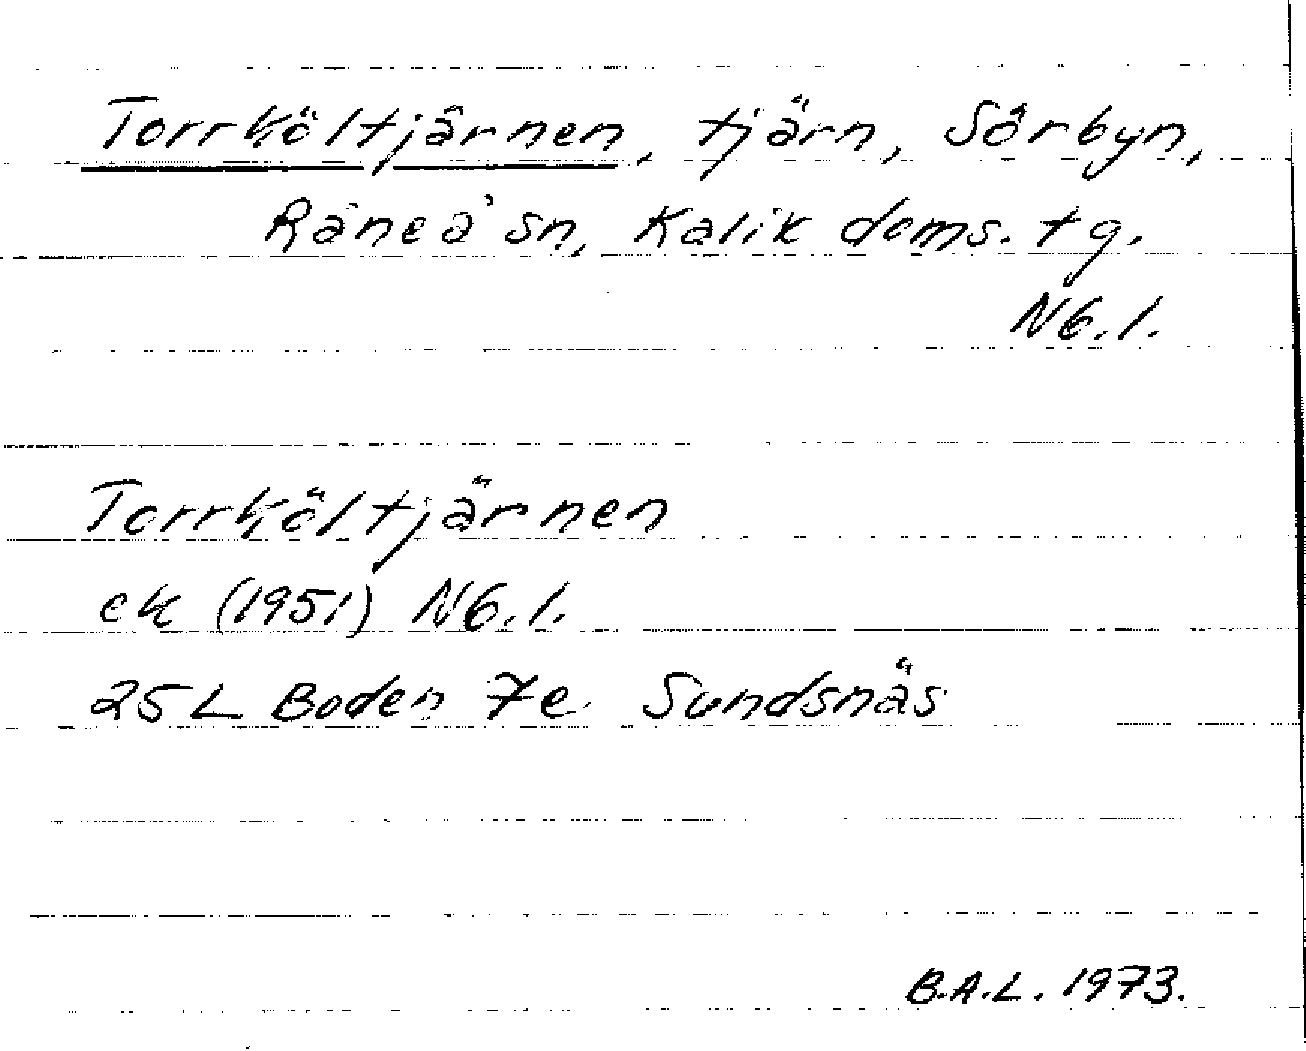 Torrköltjärnen, tjärn, Sörbyn,
Råneå sn, Kalix doms. tg.
Nb.l.
Torrköltjärnen
ek (1951) Nb.l.
25 L Boden 7e Sundsnäs
B.A.L. 1973.